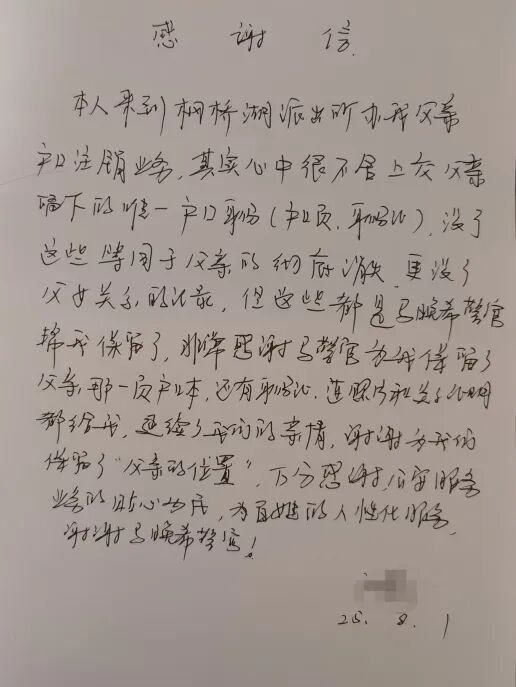 感谢信
本人来到桐桥湖派出所办我父亲
户口注销业务，其实心中很不舍上交父亲
留下的唯一户口身份（户口页、身份证），没了
这些等同于父亲的彻底消失，更没了
父女关系的记录，但这些都是马晚希警官
帮我保留了，非常感谢马警官为我保留了
父亲那一页户口本，还有身份证，连照片和关系证明
都给我，延续了我们的亲情，谢谢为我们
保留了“父亲的位置”，万分感谢，公安服务
业务的贴心为民，为百姓的人性化服务，
谢谢马晚希警官！
25.8.1